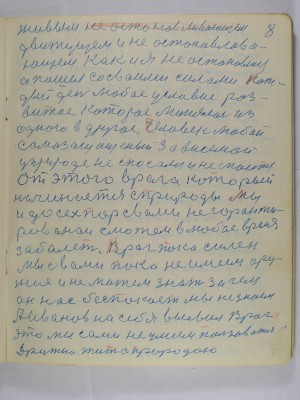 8
живым не останавливающем
двигущем и не остонавлова
ющем как и я не остановил
а пошел со своими силами Каж
дый ден любое условие роз
витие которое меняемся из
одного в другое Человек любой
самозащищеный зависемой
уприроде не спосами и неспасет
От этого врага который
начинается сприроды мы
и до сех пар свами не горанти
рованы сможем в любое время
заболеть. Враг пока силен
мы свами пока не имеем ору
жия и не можем знат за чем
ан нас беспокоет мы не знаем
Аиванов на себя вызвал Врага
это мы сами не умеем ползоватся
Дружно жить сприродою